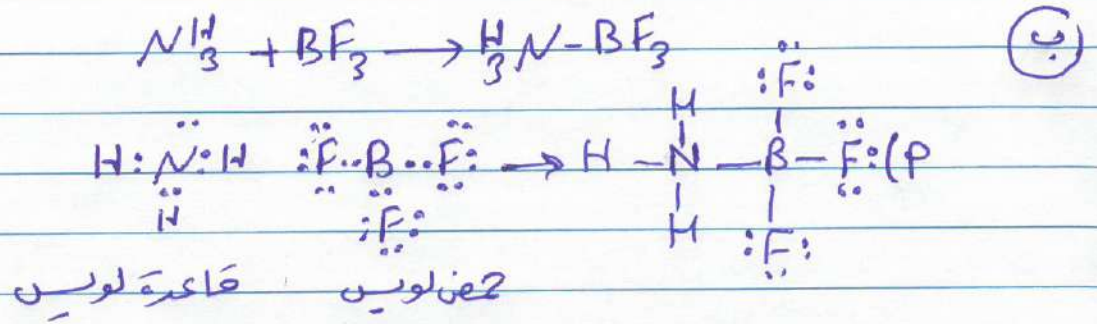 NH₃ + BF₃ → H₃N-BF₃ (ب)
H
:F:
H:N:H :F..B..F: → H-N-B-F:(P
H :F: H :F:
قاعدة لويس حمض لويس